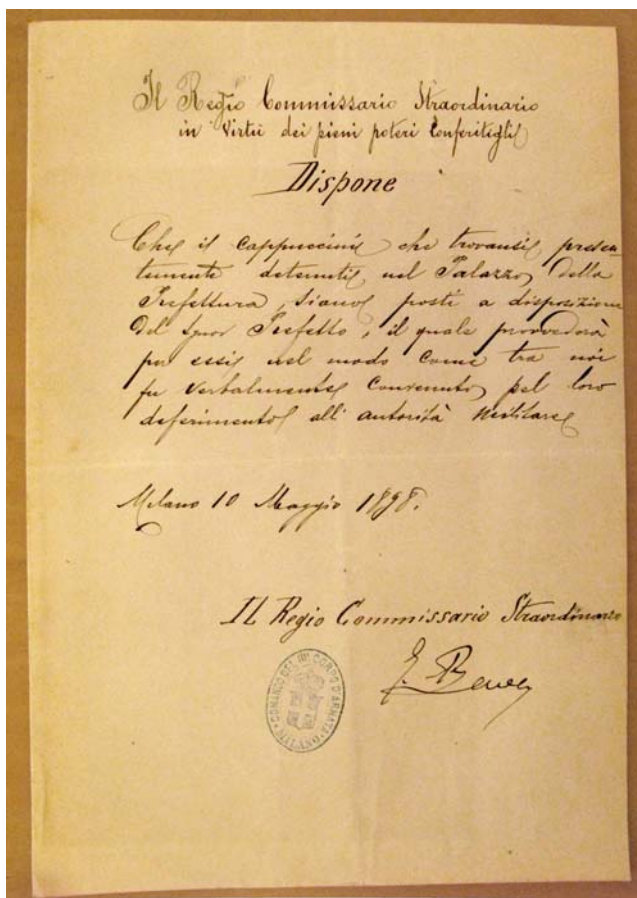 Il Regio Commissario Straordinario
in virtù dei pieni poteri conferitegli
Dispone
Che i cappuccini che trovansi presen-
temente detenuti nel Palazzo della
Prefettura, siano posti a disposizione
del Signor Prefetto, il quale provvederà
per essi nel modo come tra noi
fu verbalmente convenuto pel loro
deferimento all'autorità militare
Milano 10 Maggio 1898.
Il Regio Commissario Straordinario
COMANDO DEL III CORPO D'ARMATA
MILANO